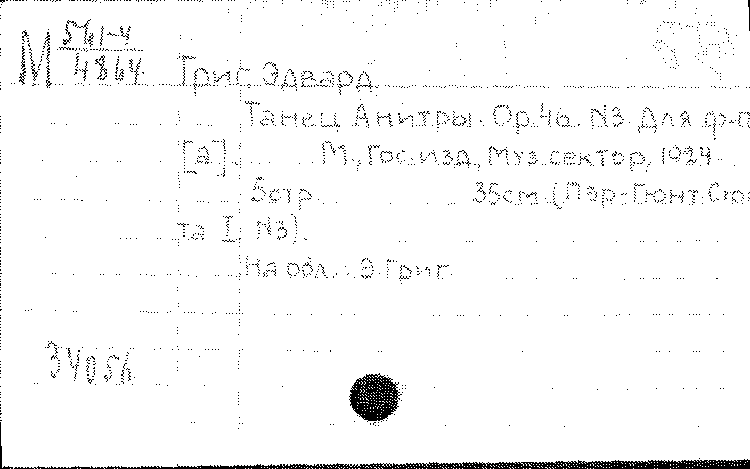 М 561-4
4864
Григ Эдвард.
Танец Анитры. Op. 46. N3. Для ф-п
[а]. М., Гос. изд., Муз. сектор, 1924.
5 стр. 35 см. (Пэр-Гюнт. Сюи
та I. N3).
На обл.: Э. Григ.
34056